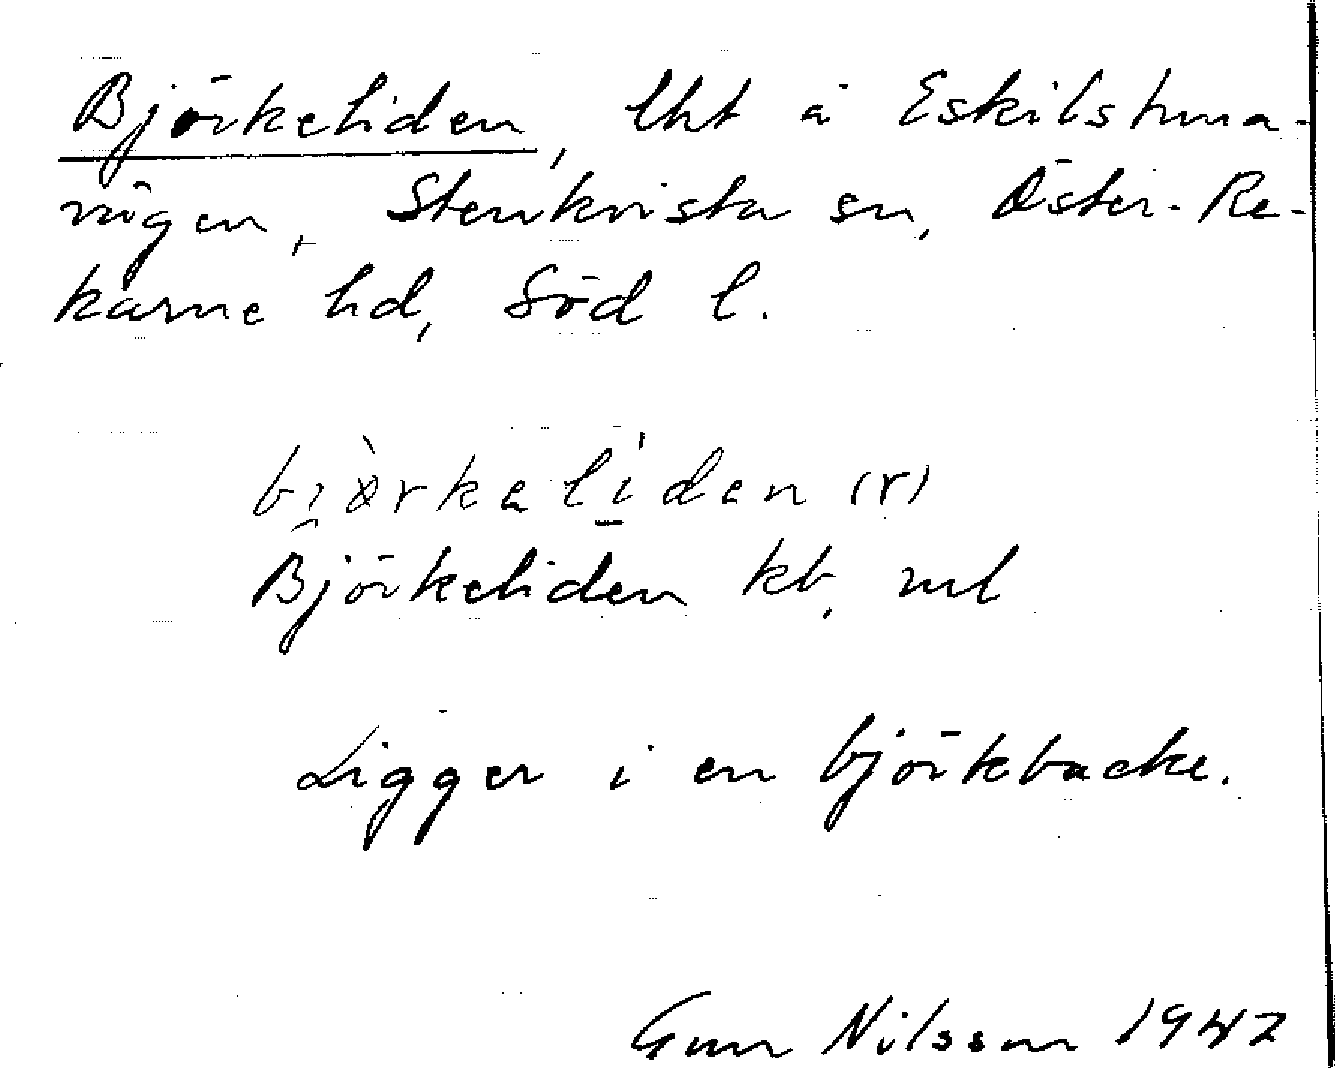 Björkeliden, lht å Eskilstuna-
vägen, Stenkvista sn, Öster-Re-
karne hd, Söd l.
bi̯ö̀rkalí̱dan (r)
Björkeliden kb, ml
Ligger i en björkbacke.
Gun Nilsson 1947